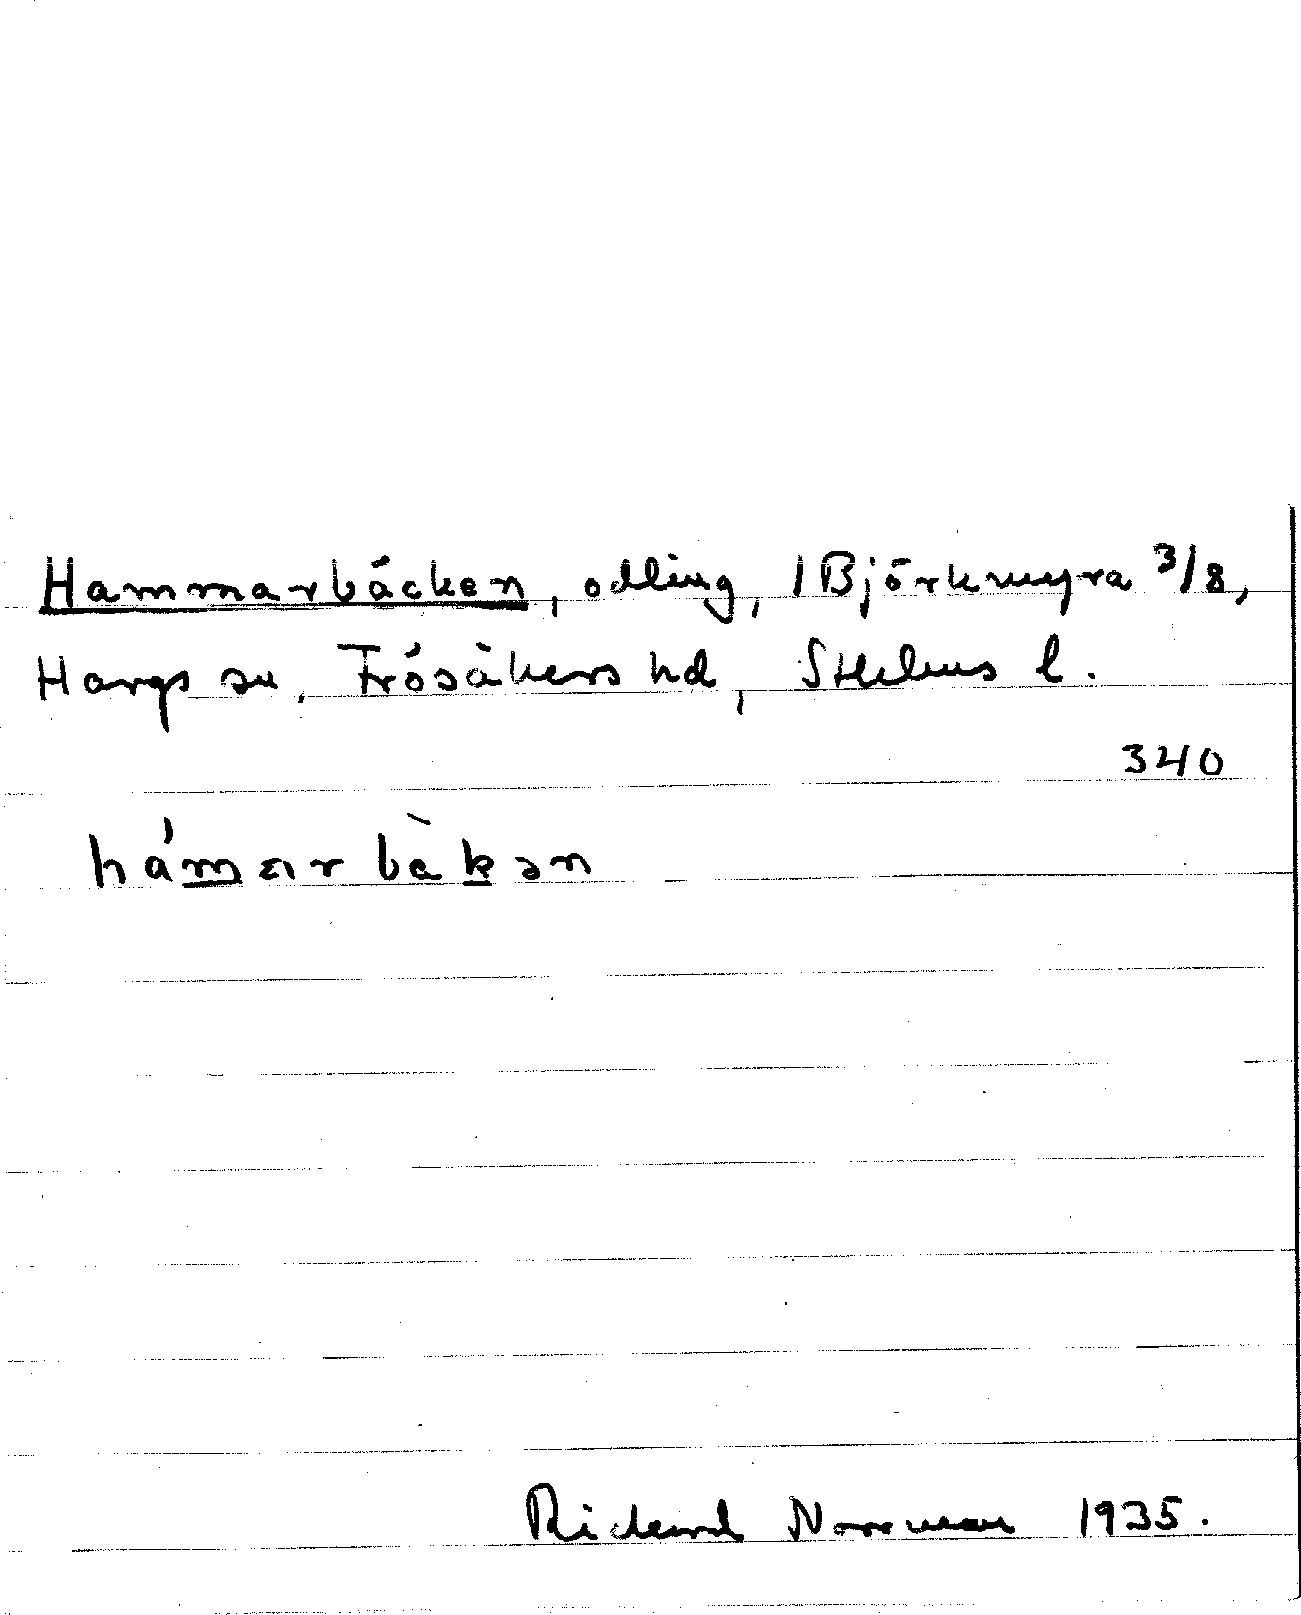 Hammarbäcken, odling, 1 Björkmyra 3/8,
Hargs sn, Frösåkers hd, Sthlms l.
340
hámarbàkən
Richard Norrman 1935.